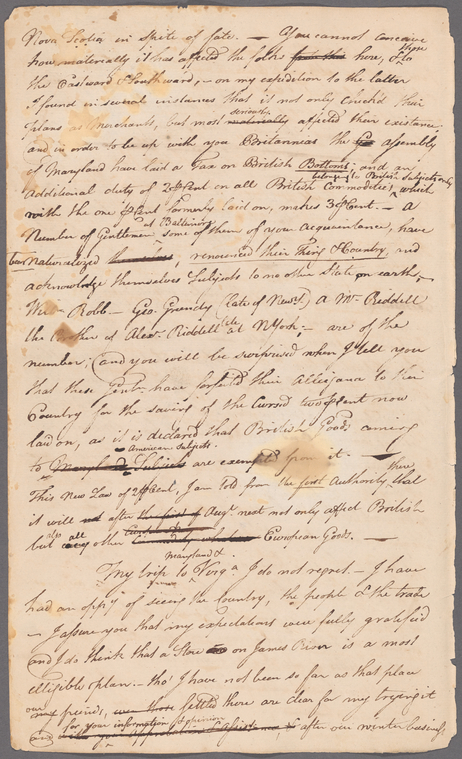 Nova Scotia in Spite of fate. — You cannot conceive
how materially it has affected the folks here, & those
to
the Eastward & Southward, — on my expedition to the latter
I found in several instances that it not only check'd their
plans as Merchants, but most seriously affected their existance,
and in order to be up with you Britanneas the assembly
of Maryland have laid a Tax on British Bottoms; and an
belong.g to British Subjects only
additional duty of 2 ⅌ Cent on all British Commodities, which
with the one ⅌ Cent formerly laid on, makes 3 ⅌ Cent. — A
at Baltimore
Number of Gentlemen some of them of your acquaintance, have
been Naturalized, renounced their King & Country, and
acknowledge themselves Subjects to no other State on earth, —
Robb — Geo. Grundy (late of New) a Mr. Riddell
the brother of Alexr. Riddell late at N York; — are of the
number; (and you will be surprised when I tell you
that these Gentn. have forfeited their Allegiance to their
Country for the saving of the cursed two ⅌ Cent now
laid on, as it is declared that British Goods coming
American Subjects
to Maryland Subjects are exempted from it. —
This New Law of 2 ⅌ Cent, I am told from the first Authority there that
it will after the first of Augt. next not only affect British
but also all other European Goods. —
Maryland &
My trip to Virga. I do not regret. — I have
had an oppy. of seeing the Country, the people & the trade
— I assure you that my expectations were fully gratified
and I do think that a Store on James River is a most
elligible plan — tho' I have not been so far as that place
our friends, settled there are clear for my trying it
for your information & opinion
after our winter business,